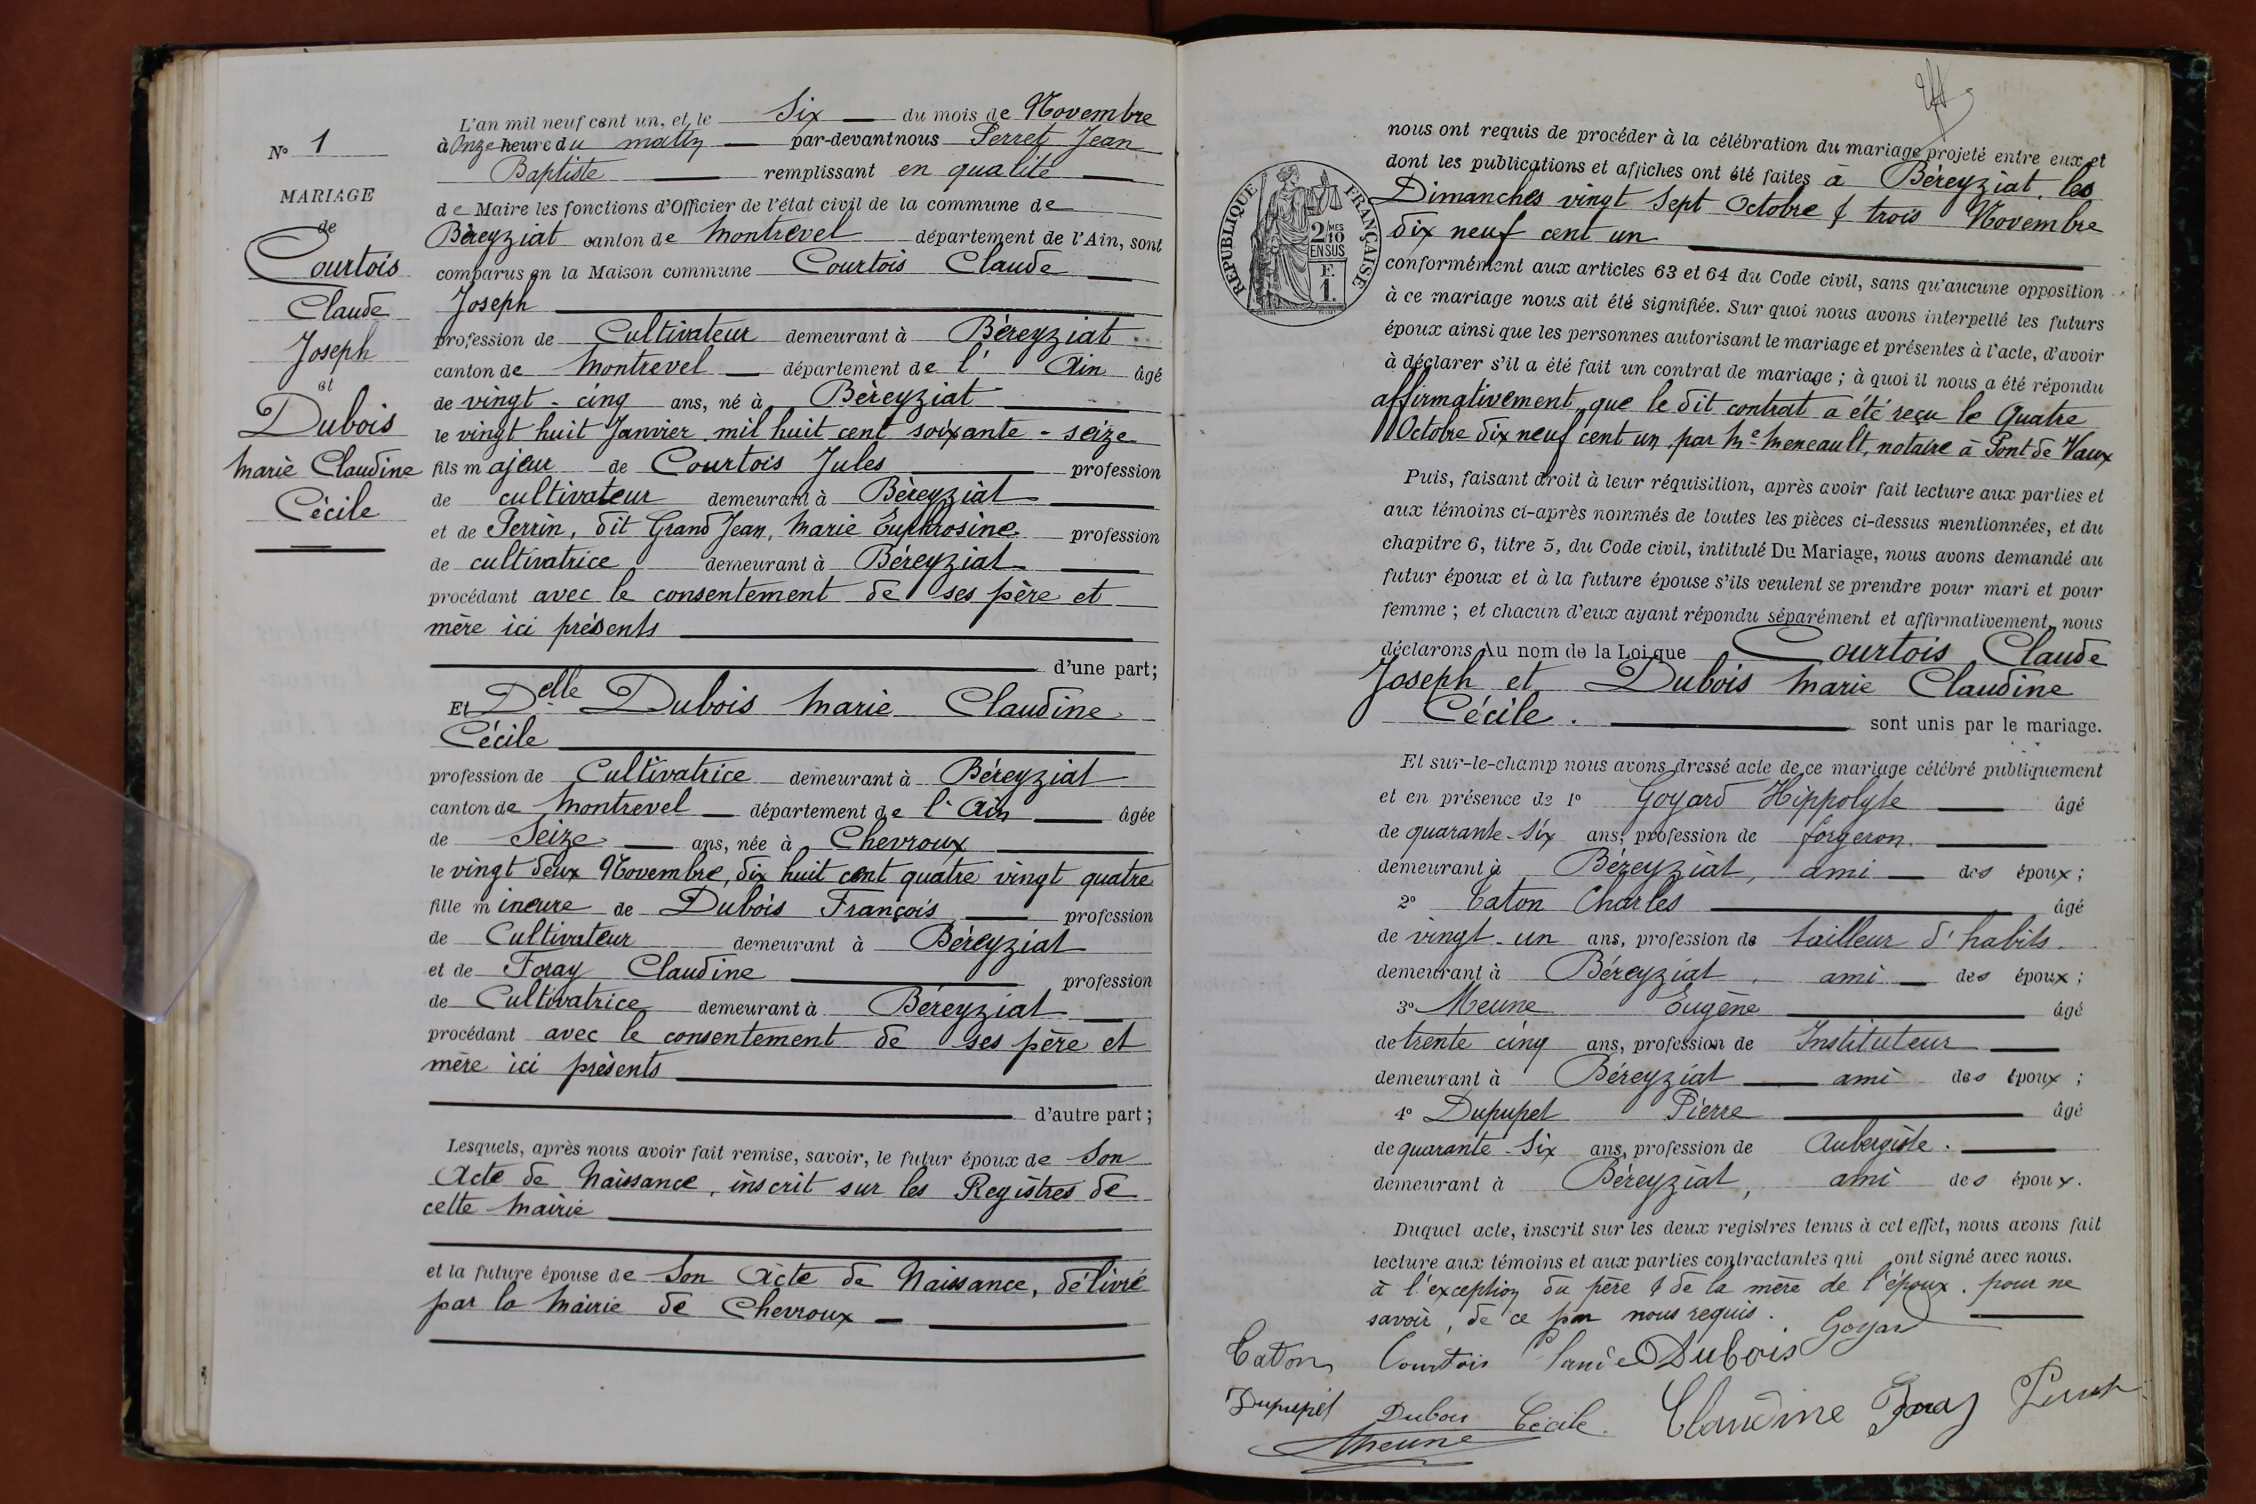 L'an mil neuf cent un, et le Six du mois de Novembre
à Onze heure du matin par-devant nous Perret Jean
Baptiste remplissant en qualité
de Maire les fonctions d'Officier de l'état civil de la commune de
Béreyziat canton de Montrevel département de l'Ain, sont
comparus en la Maison commune Courtois Claude
Joseph
profession de Cultivateur demeurant à Béreyziat
canton de Montrevel département de l' Ain âgé
de vingt-cinq ans, né à Béreyziat
le vingt huit Janvier mil huit cent soixante-seize
fils majeur de Courtois Jules profession
de cultivateur demeurant à Béreyziat
et de Perrin, dit Grand Jean, Marie Euphrosine profession
de cultivatrice demeurant à Béreyziat
procédant avec le consentement de ses père et
mère ici présents
d'une part;
Et Delle Dubois Marie Claudine
Cécile
profession de Cultivatrice demeurant à Béreyziat
canton de Montrevel département de l'Ain âgée
de Seize ans, née à Chevroux
le vingt deux Novembre, dix huit cent quatre vingt quatre
fille mineure de Dubois François profession
de Cultivateur demeurant à Béreyziat
et de Foray Claudine profession
de Cultivatrice demeurant à Béreyziat
procédant avec le consentement de ses père et
mère ici présents
d'autre part;
Lesquels, après nous avoir fait remise, savoir, le futur époux de Son
Acte de Naissance, inscrit sur les Registres de
cette Mairie
et la future épouse de Son Acte de Naissance, délivré
par la Mairie de Chevroux
N° 1
MARIAGE
de
Courtois
Claude
Joseph
et
Dubois
Marie Claudine
Cécile
RÉPUBLIQUE FRANÇAISE
2 MES
10
EN SUS
F.
1.
nous ont requis de procéder à la célébration du mariage projeté entre eux et
dont les publications et affiches ont été faites à Béreyziat, les
Dimanches vingt Sept Octobre & trois Novembre
dix neuf cent un
conformément aux articles 63 et 64 du Code civil, sans qu'aucune opposition
à ce mariage nous ait été signifiée. Sur quoi nous avons interpellé les futurs
époux ainsi que les personnes autorisant le mariage et présentes à l'acte, d'avoir
à déclarer s'il a été fait un contrat de mariage; à quoi il nous a été répondu
affirmativement, que le dit contrat a été reçu le Quatre
Octobre dix neuf cent un, par Me Meneault, notaire à Pont de Vaux
Puis, faisant droit à leur réquisition, après avoir fait lecture aux parties et
aux témoins ci-après nommés de toutes les pièces ci-dessus mentionnées, et du
chapitre 6, titre 5, du Code civil, intitulé Du Mariage, nous avons demandé au
futur époux et à la future épouse s'ils veulent se prendre pour mari et pour
femme; et chacun d'eux ayant répondu séparément et affirmativement, nous
déclarons Au nom de la Loi que Courtois Claude
Joseph et Dubois Marie Claudine
Cécile. sont unis par le mariage.
Et sur-le-champ nous avons dressé acte de ce mariage célébré publiquement
et en présence de 1° Goyard Hippolyte âgé
de quarante-six ans, profession de forgeron.
demeurant à Béreyziat, ami des époux;
2° Caton Charles âgé
de vingt-un ans, profession de tailleur d'habits.
demeurant à Béreyziat, ami des époux;
3° Meune Eugène âgé
de trente cinq ans, profession de Instituteur
demeurant à Béreyziat ami des époux;
4° Dupupet Pierre âgé
de quarante-Six ans, profession de Aubergiste.
demeurant à Béreyziat, ami des époux.
Duquel acte, inscrit sur les deux registres tenus à cet effet, nous avons fait
lecture aux témoins et aux parties contractantes qui ont signé avec nous.
à l'exception du père & de la mère de l'époux, pour ne
savoir, de ce par nous requis.
Goyard
Caton Courtois Claude Dubois
Dupupet Dubois Cécile. Claudine Foray Perret
Meune